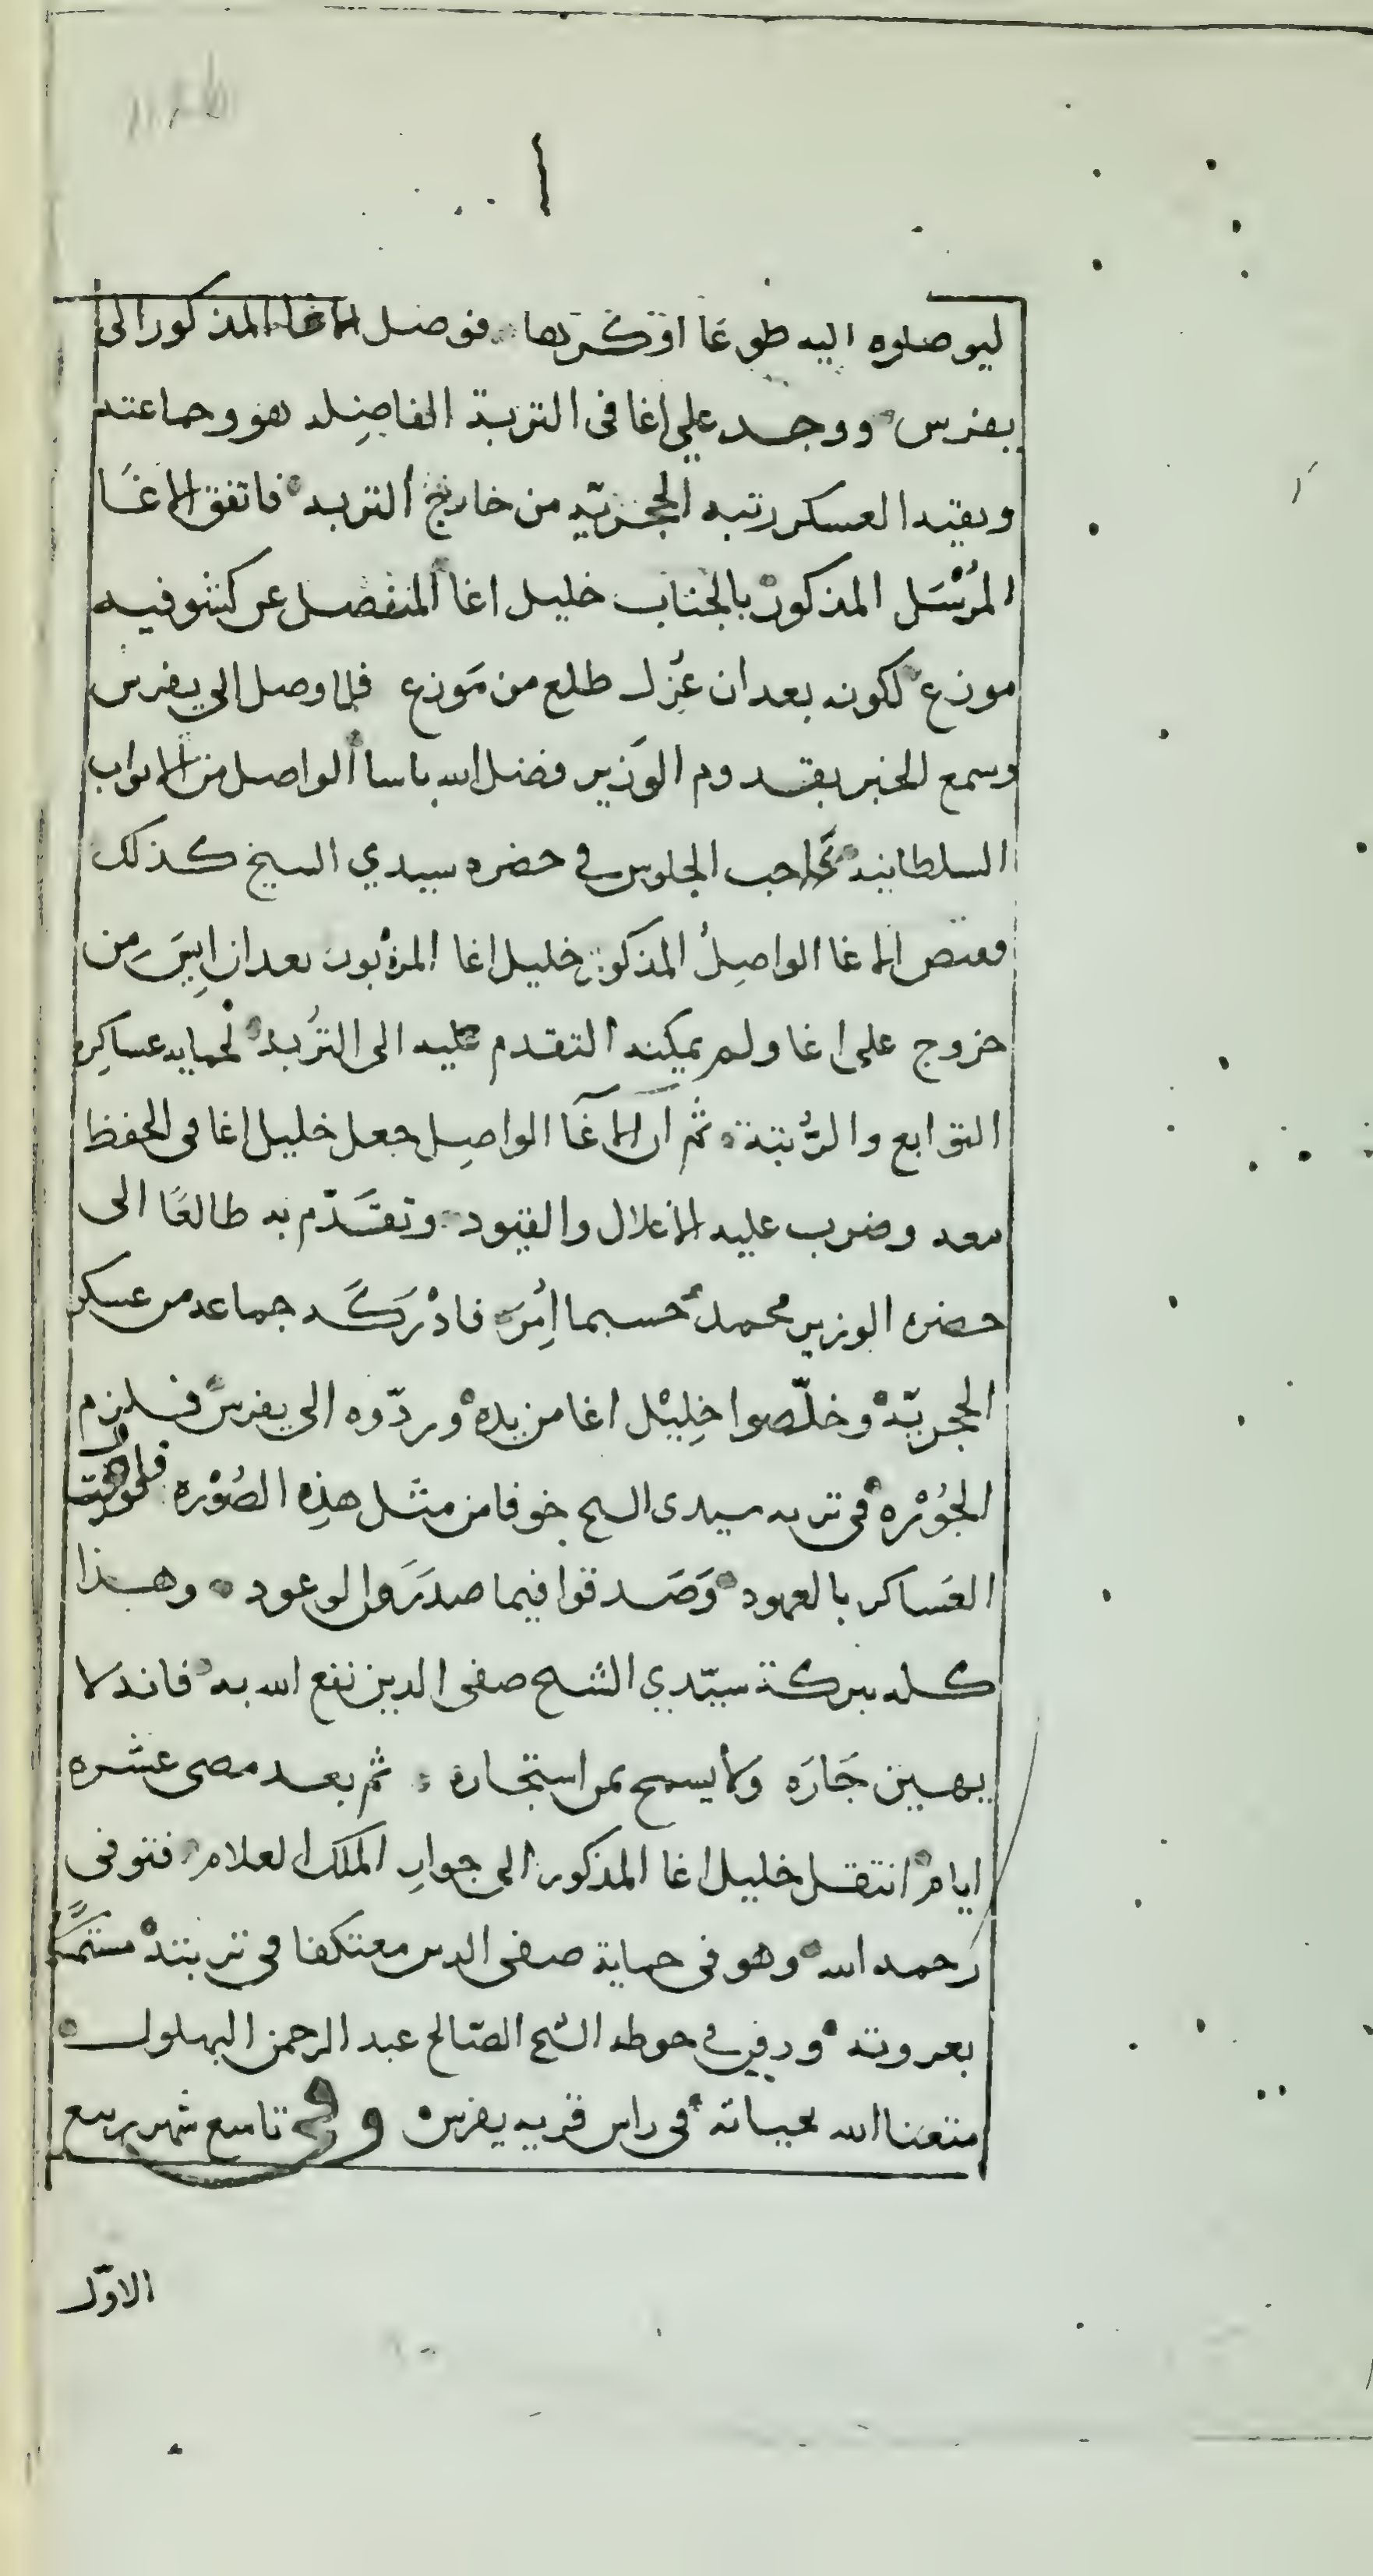 ليوصلوه اليه طوعًا او كرها فوصل الاغا المذكور الى
يفرس ووجد علي اغا فى التربة الفاضِله هو وجماعته
وبقيه العسكر رتبه الحجريّه من خارج التربه فاتفق الاغَا
المُرْسَل المذكور بالجناب خليل اغا المنفصل عن كشوفيه
موزع لكونه بعد ان عُزِل طلع من مَوزع فلما وصل الي يفرس
وسمع الخبر بقدوم الوَزير فضل الله باسا الواصل من الابواب
السلطانيه احب الجلوس في حضره سيدي السيخ كذلك
فقبض الاغا الواصِلُ المذكور خليل اغا المزبور بعد ان ايِسَ من
خروج على اغا ولم يمكنه التقدم عليه الى التُربه لحمايه عساكره
التوابع والرُّتبة ثم ان الاغا الواصِل جعل خليل اغا فى الحفظ
معه وضرب عليه الاغلال والقيود وتقَدّم به طالعًا الى
حضره الوزير محمد حسبما اُمِرَ فادْرَكَه جماعه من عسكر
الحجريّه وخلّصوا خِليْل اغا من يده وردّوه الى يفرس فلزم
الجُوْره فى تربه سيدى السح خوفا من مثل هذِه الصُوْره
العَساكر بالعهود وَصَدقوا فيما صدَرَ من الوعود وهذا
كله ببركة سيّدي الشيح صفى الدين نفع الله به فانه لا
يهين جَارَه ولا يسمح بمن استجاره ثم بعد مضى عشره
ايام انتقل خليل اغا المذكور الى جوارِ الملك العلام فتوفى
رَحمه الله وهو فى حماية صفى الدين معتكفا فى تربته مستمسكًا
بعروته ودفِن في حوطه الشيح الصّالح عبد الرحمن البهلول
متعنا الله بحياته فى راس قريه يفرس وفي تاسع شهر ربيع
الاوّل